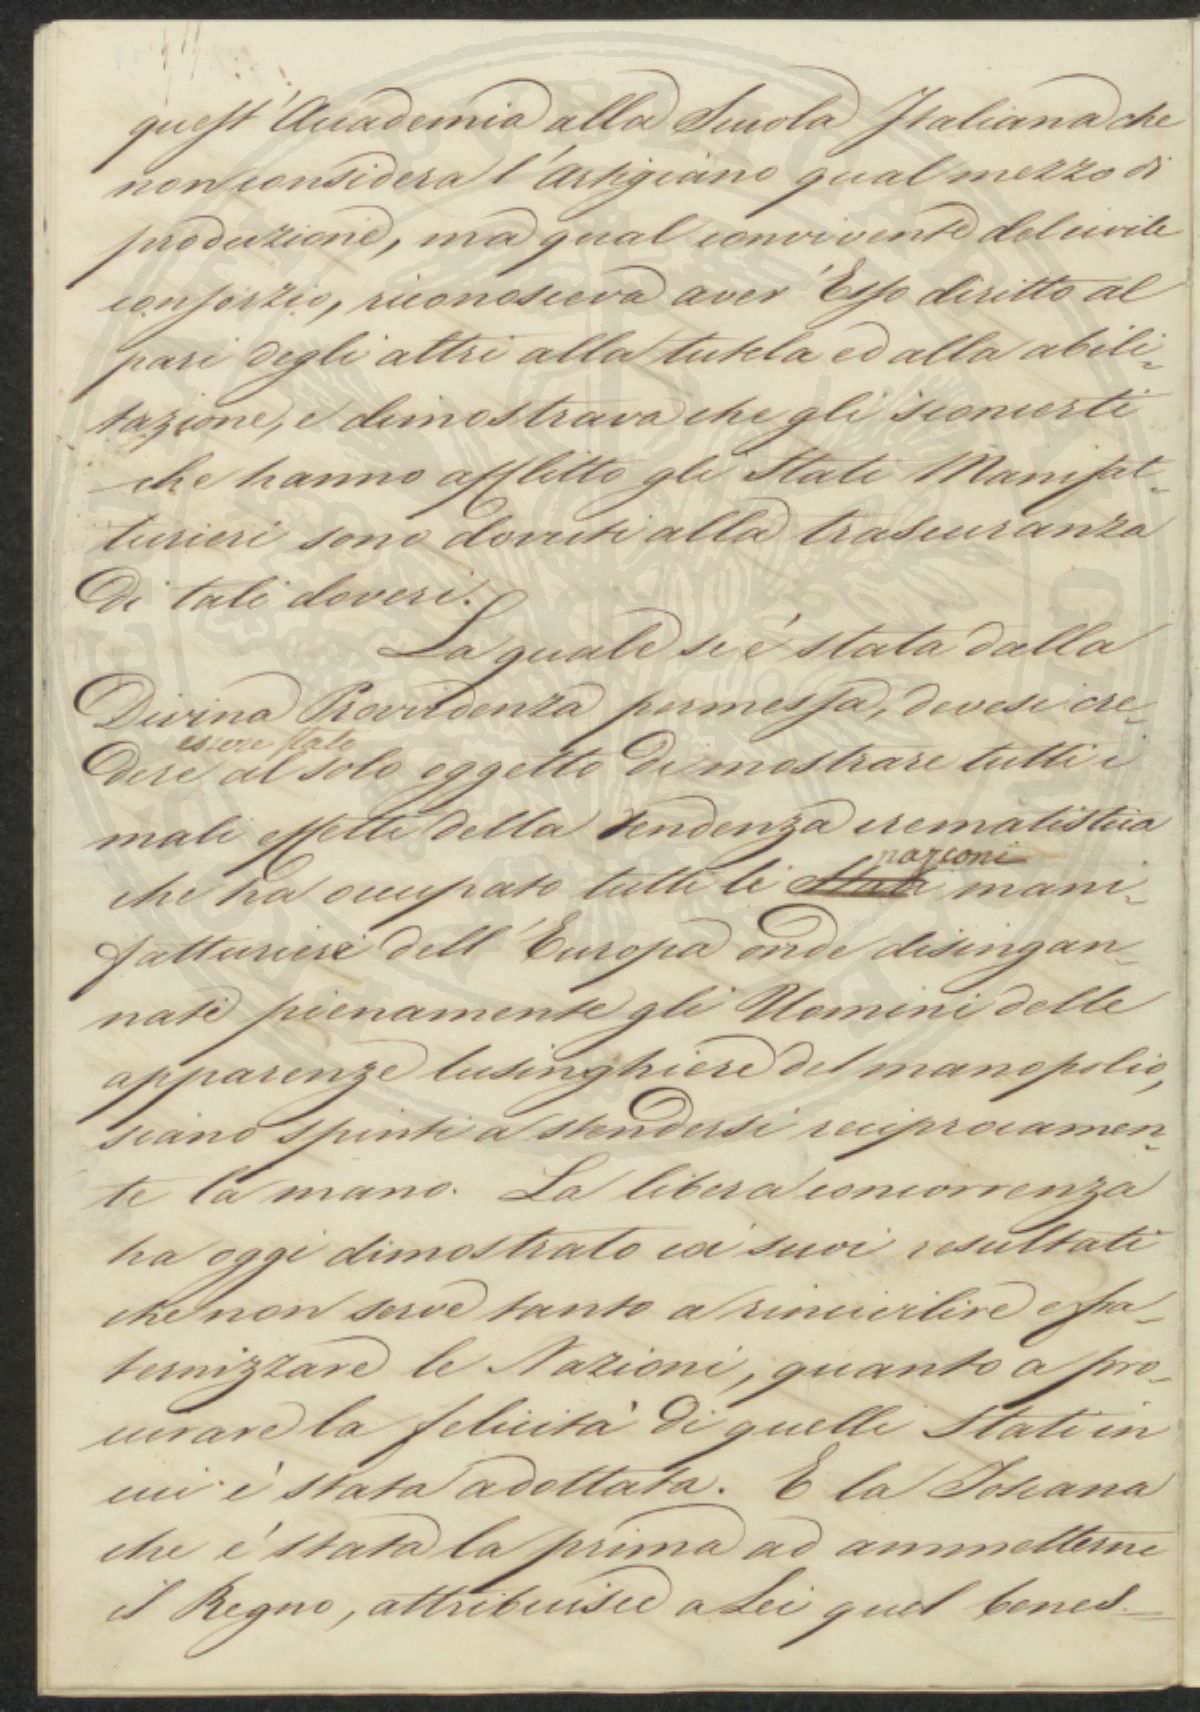 quest'Accademia alla Scuola Italiana che
non considera l'Artigiano qual mezzo di
produzione, ma qual convivente del civile
consorzio, riconosceva aver Esso diritto al
pari degli altri alla tutela ed alla abili-
tazione, e dimostrava che gli sconcerti
che hanno afflitto gli Stati Manifat-
turieri sono dovuti alla trascuranza
di tali doveri.
La quale se è stata dalla
Divina Provvidenza permessa, devesi cre-
essere stato
dere al solo oggetto di mostrare tutti i
mali effetti della tendenza crematistica
nazioni
che ha occupato tutti le Stati mani-
fatturiere dell'Europa onde disingan-
nati pienamente gli Uomini delle
apparenze lusinghiere del manopolio,
siano spinti a stendersi reciprocamen-
te la mano. La libera concorrenza
ha oggi dimostrato coi suoi resultati
che non serve tanto a rincivilire e fra-
ternizzare le Nazioni, quanto a pro-
curare la felicità di quelli Stati in
cui è stata adottata. E la Toscana
che è stata la prima ad ammetterne
il Regno, attribuisce a Lei quel benes-